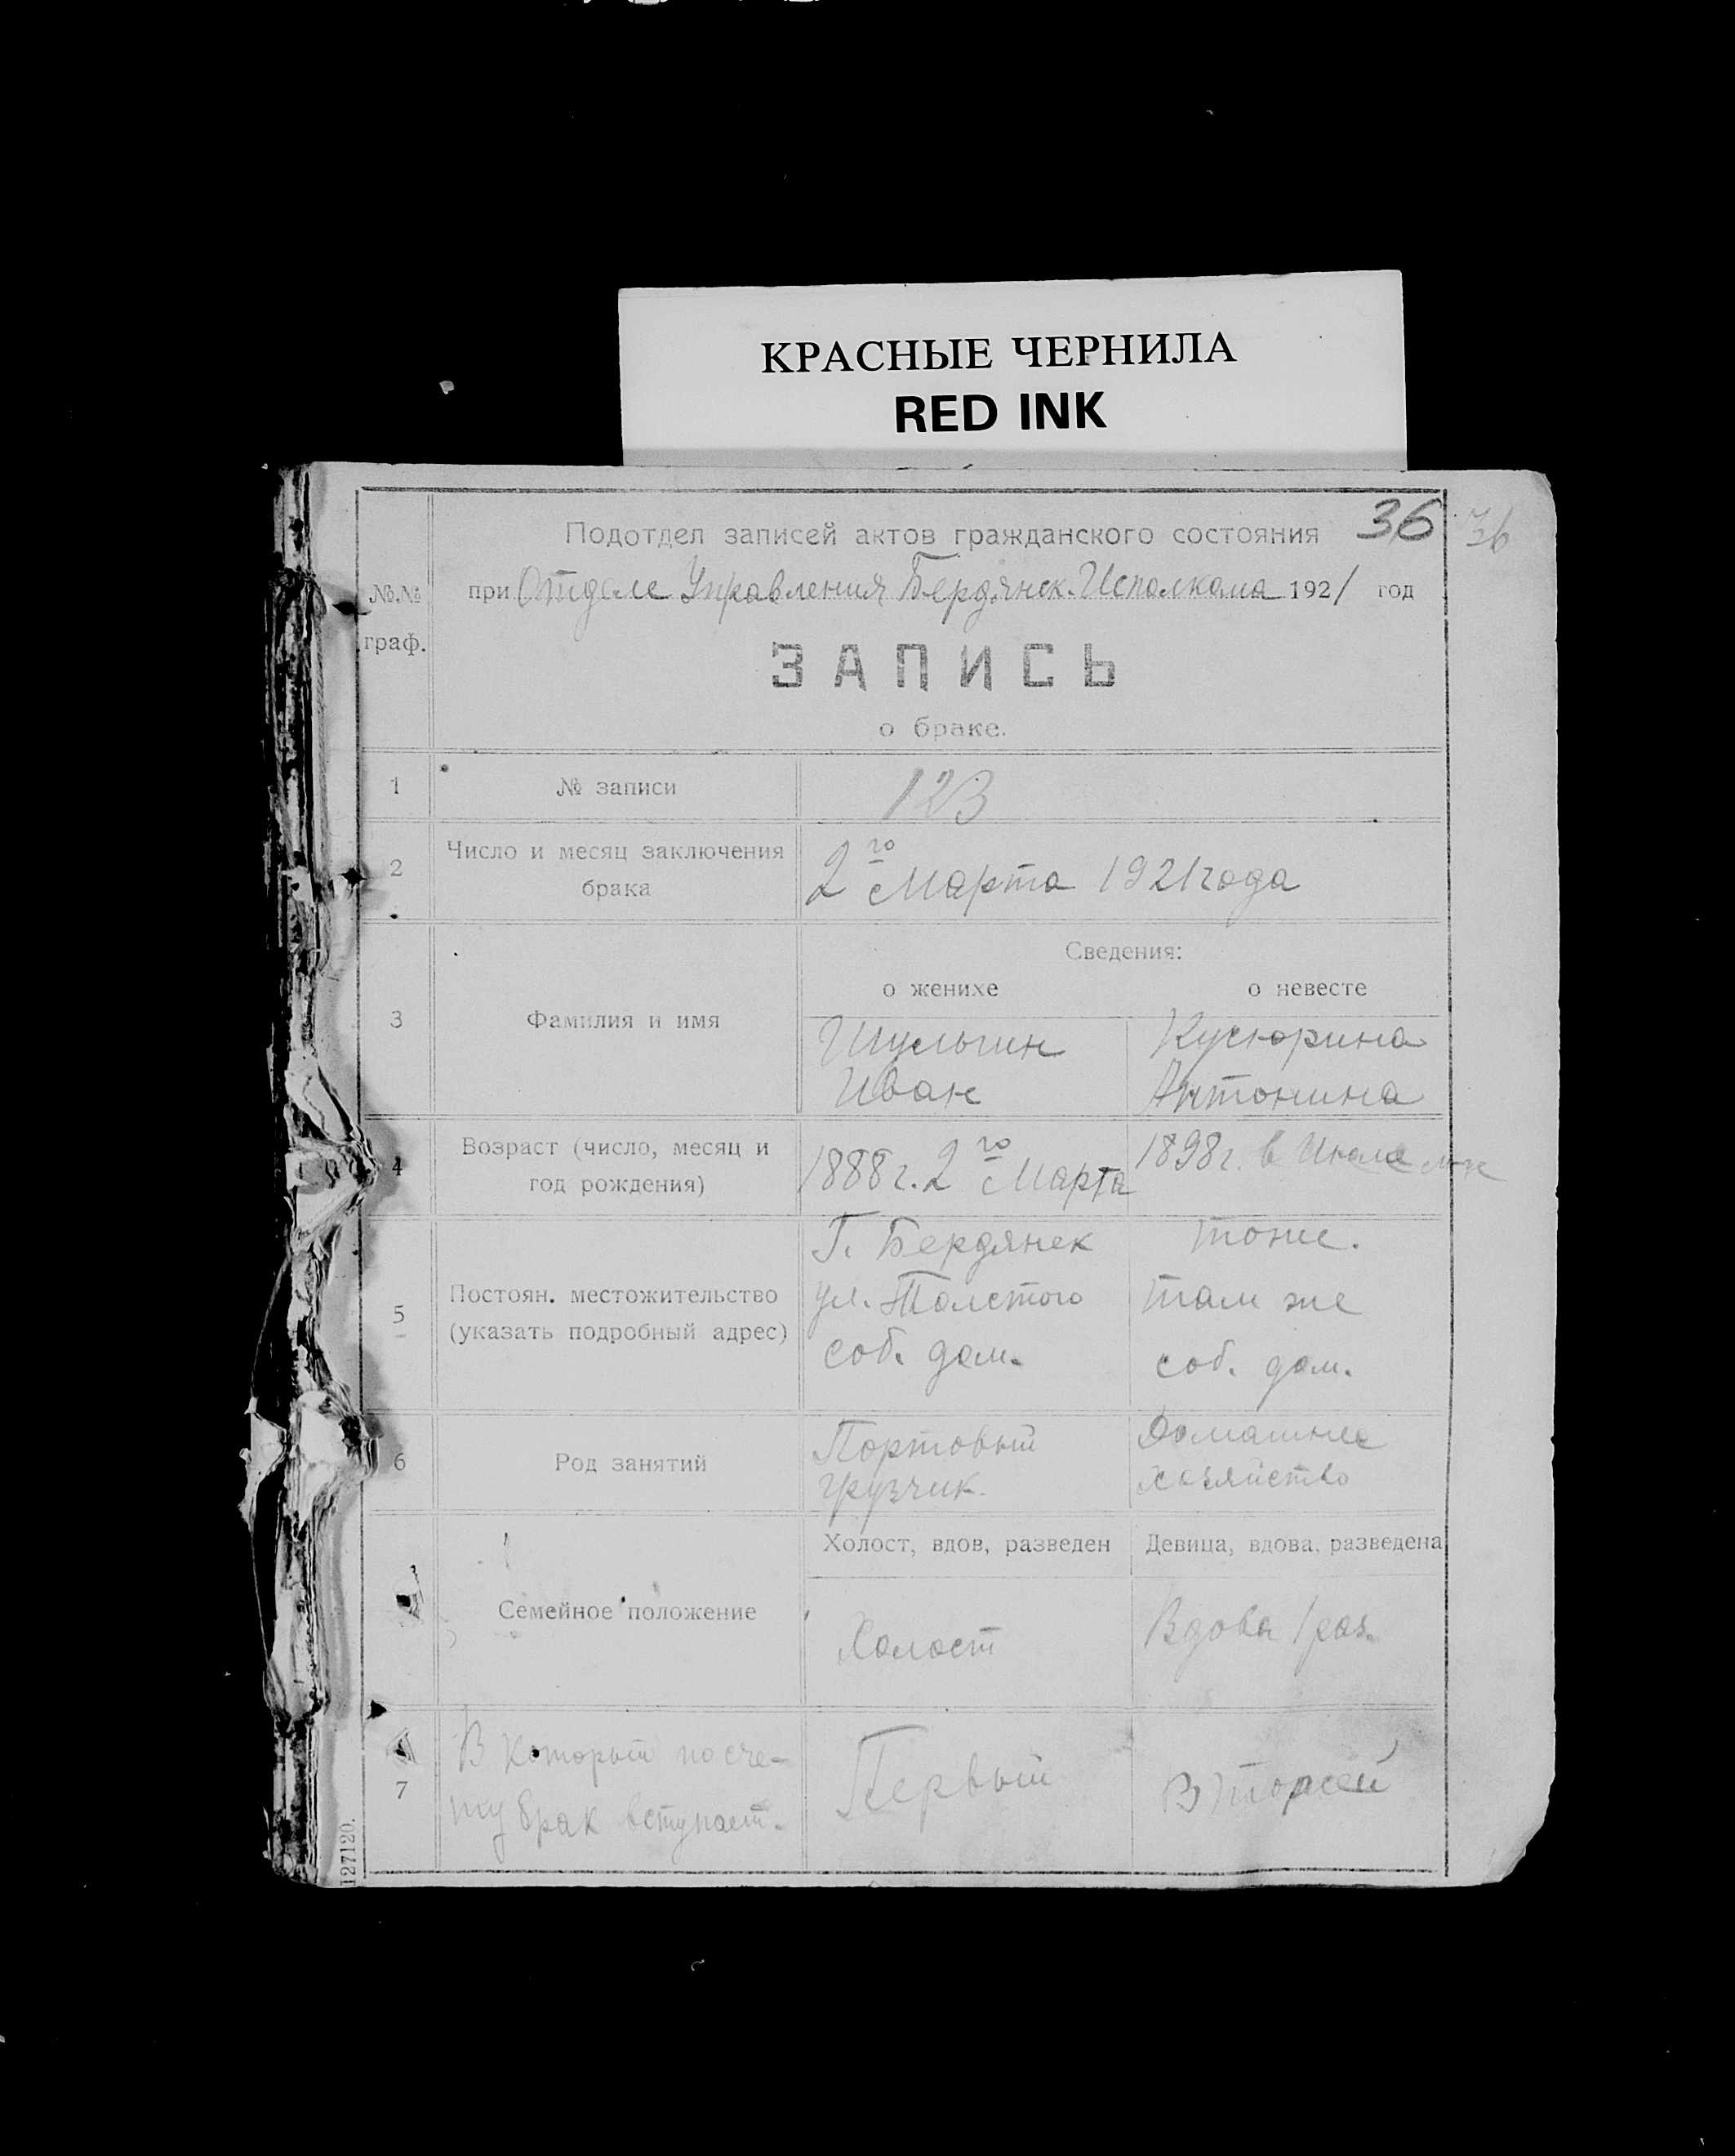 КРАСНЫЕ ЧЕРНИЛА
RED INK
36 36
Подотдел записей актов гражданского состояния
при Отделе Управления Бердянск. Исполкома 1921 год
№№ граф.
ЗАПИСЬ
о браке.
1 № записи 123
2 Число и месяц заключения брака 2го Марта 1921 года
Сведения:
о женихе о невесте
3 Фамилия и имя
Шульгин Кусюрина
Иван Антонина
4 Возраст (число, месяц и год рождения)
1888 г. 2го Марта 1898 г. в
5 Постоян. местожительство
(указать подробный адрес)
Г. Бердянск тоже.
ул. Толстого там же
соб. дом. соб. дом.
6 Род занятий
Портовый Домашнее
грузчик. хозяйство
Холост, вдов, разведен Девица, вдова, разведена
Семейное положение
Холост Вдова 1 раз.
7 В который по сче-
ту брак вступает.
Первый Второй
127120.